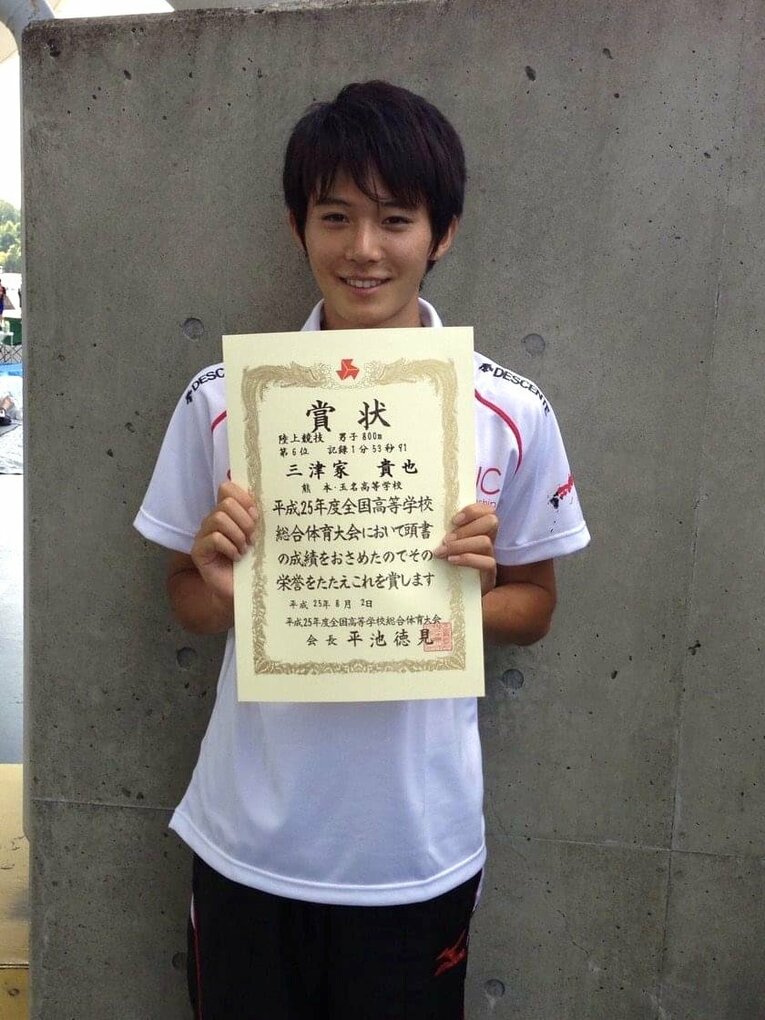 賞状
陸上競技 男子800m
第6位 記録1分53秒91
三津家 貴也
熊 本・玉名高等学校
平成25年度全国高等学校
総合体育大会において頭書
の成績をおさめたのでその
栄誉をたたえこれを賞します
平成25年8月2日
平成25年度全国高等学校総合体育大会
会長 平池徳見
DESC
DESCENTE
IC